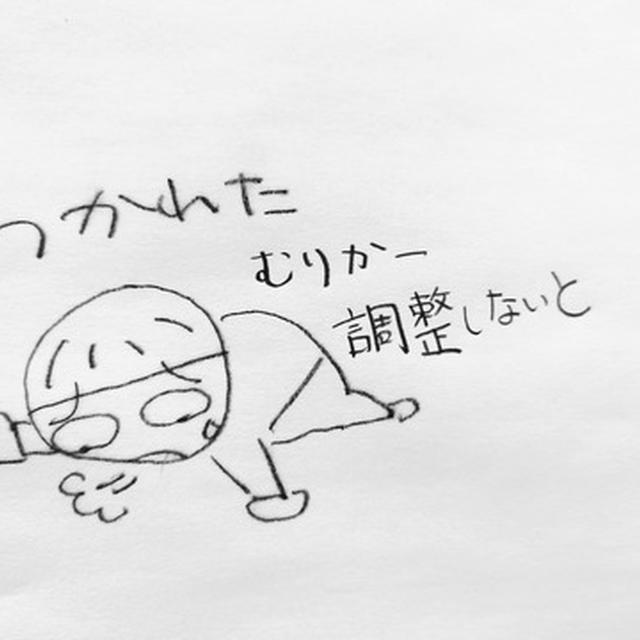 つかれた
むりかー
調整しないと